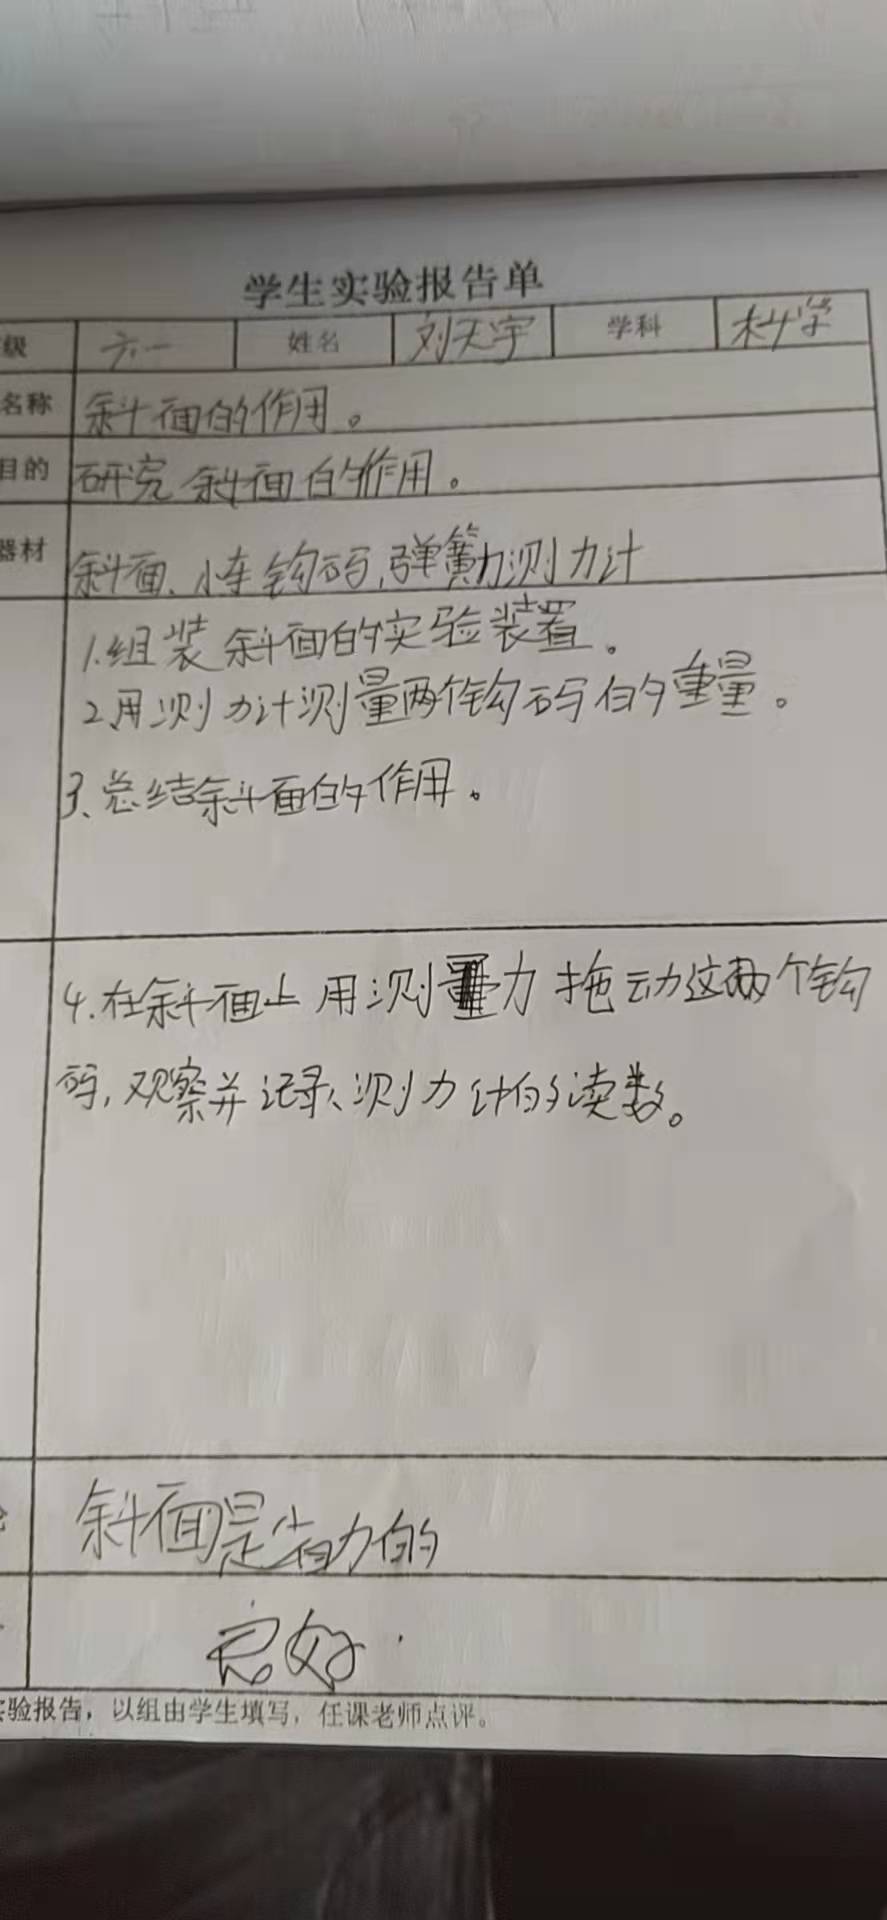 学生实验报告单
级 六一 姓名 刘天宇 学科 科学
名称 斜面的作用。
目的 研究斜面的作用。
器材 斜面、小车钩码,弹簧力测力计
1.组装斜面的实验装置。
2用测力计测量两个钩码的重量。
3、总结斜面的作用。
4.在斜面上用测力拖动这两个钩
码,观察并记录、测力计的读数。
斜面是省力的
良好.
实验报告,以组由学生填写,任课老师点评。